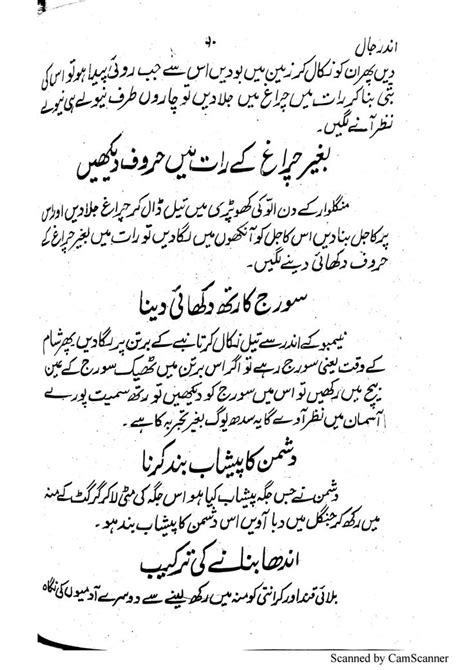 اندر جال
۲۰
دیں پھر ان کو نکال کر زمین میں بو دیں اس سے جب روئی پیدا ہو تو اس کی
بتی بنا کر رات میں چراغ میں جلا دیں تو چاروں طرف نیولے ہی نیولے
نظر آنے لگیں۔
بغیر چراغ کے رات میں حروف دیکھیں
منگلوار کے دن الّو کی کھوپڑی میں تیل ڈال کر چراغ جلا دیں اور اس
پر کاجل بنا دیں اس کاجل کو آنکھوں میں لگا دیں تو رات میں بغیر چراغ کے
حروف دکھائی دینے لگیں۔
سورج کا رتھ دکھائی دینا
نیمبو کے اندر سے تیل نکال کر تانبے کے برتن پر لگا دیں پھر شام
کے وقت یعنی سورج رہے تو اگر اس برتن میں ٹھیک سورج کے عین
بیچ میں رکھیں تو اس میں سورج کو دیکھیں تو رتھ سمیت پورے
آسمان میں نظر آوے گا یہ سدھ یوگ بغیر تجربہ کا ہے۔
دشمن کا پیشاب بند کرنا
دشمن نے جس جگہ پیشاب کیا ہو اس جگہ کی مٹی لا کر گرگٹ کے منہ
میں رکھ کر جنگل میں دبا آویں اس دشمن کا پیشاب بند ہو۔
اندھا بنانے کی ترکیب
بلائی قند اور کرانتی کو منہ میں رکھ لینے سے دوسرے آدمیوں کی نگاہ
Scanned by CamScanner